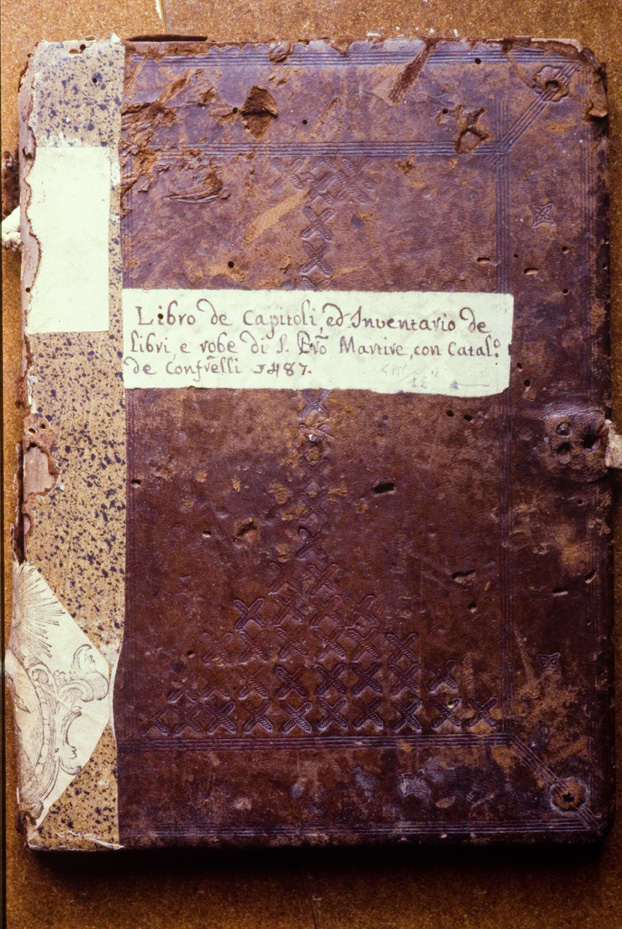 Libro de Capitoli, ed Inventario de
libri, e robe di S. Pr̃o Martire, con Catal.º
de Confrelli 1487.